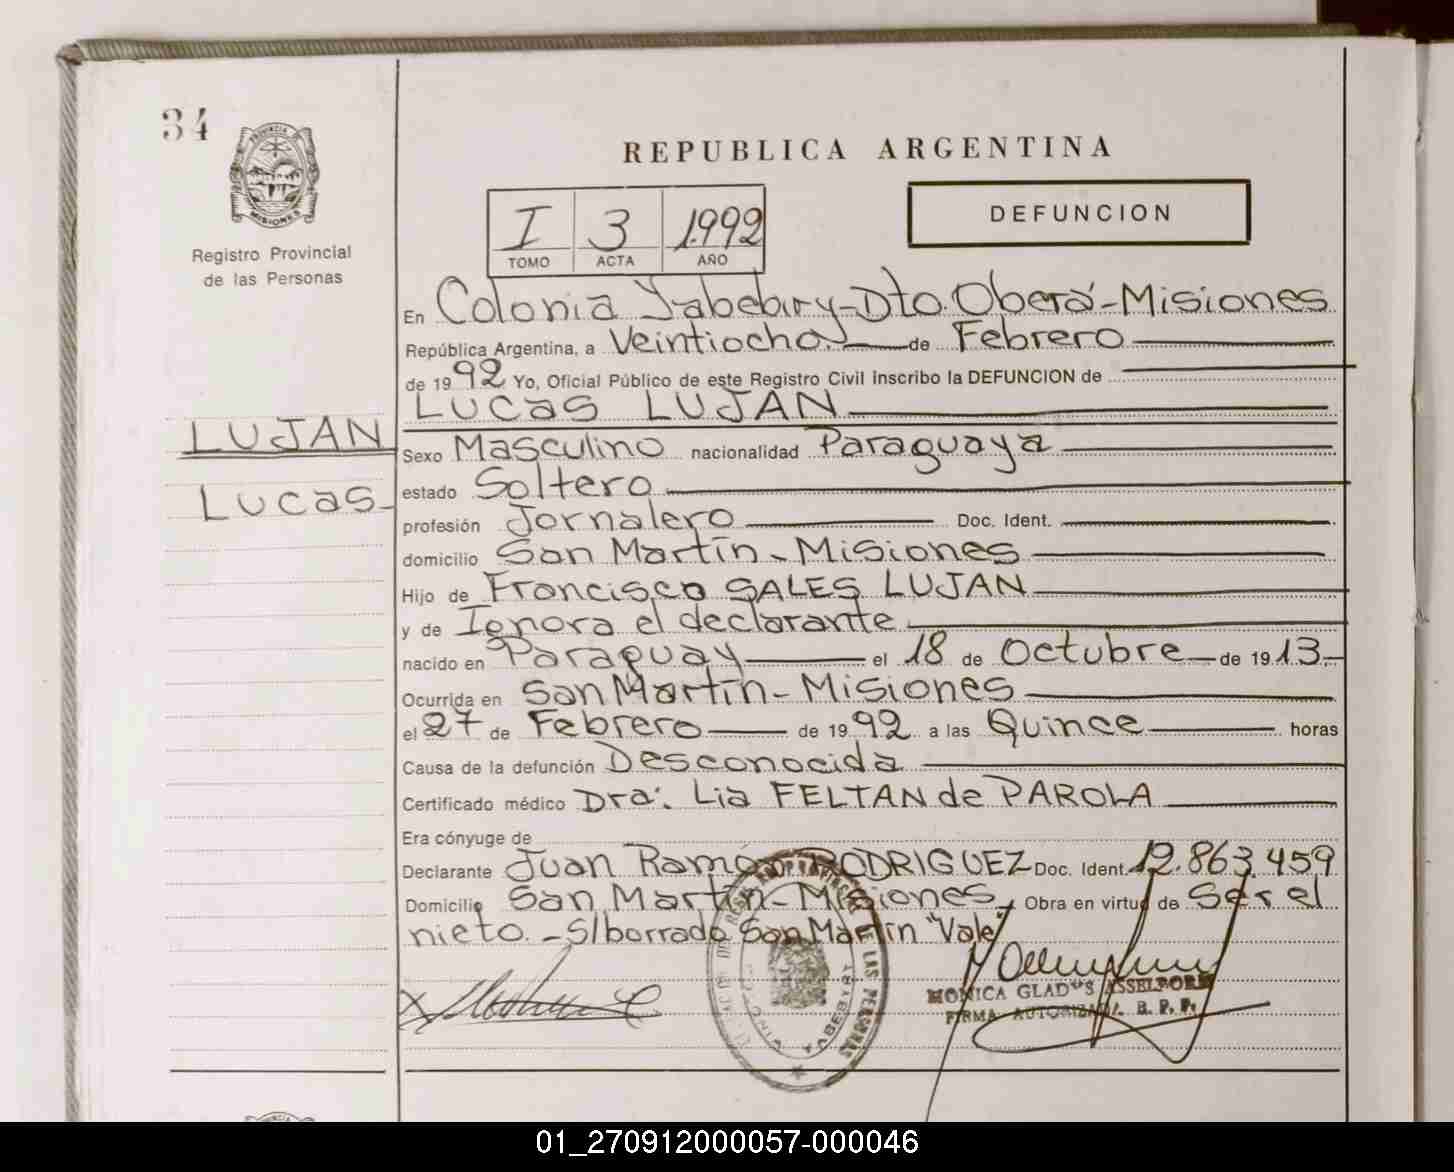 34
PROVINCIA DE
MISIONES
Registro Provincial
de las Personas
REPUBLICA ARGENTINA
I 3 1.992
TOMO ACTA AÑO
DEFUNCION
En Colonia Yabebiry-Dto. Oberá-Misiones
República Argentina, a Veintiocho de Febrero
de 1992 Yo, Oficial Público de este Registro Civil inscribo la DEFUNCION de
LUCAS LUJAN
LUJAN
Lucas
Sexo Masculino nacionalidad Paraguaya
estado Soltero
profesión Jornalero Doc. Ident.
domicilio San Martín-Misiones
Hijo de Francisco SALES LUJAN
y de Ignora el declarante
nacido en Paraguay el 18 de Octubre de 1913
Ocurrida en San Martín-Misiones
el 27 de Febrero de 1992 a las Quince horas
Causa de la defunción Desconocida
Certificado médico Dra: Lia FELTAN de PAROLA
Era cónyuge de
Declarante Juan Ramón RODRIGUEZ Doc. Ident. 12.863.459
Domicilio San Martín-Misiones, Obra en virtud de Ser el
nieto.-S/borrado San Martín "Vale"
MONICA GLADYS
FIRMA AUTORIZADA R. P. P.
LAS PERSONAS
COLONIA YABEBIRY
01_270912000057-000046